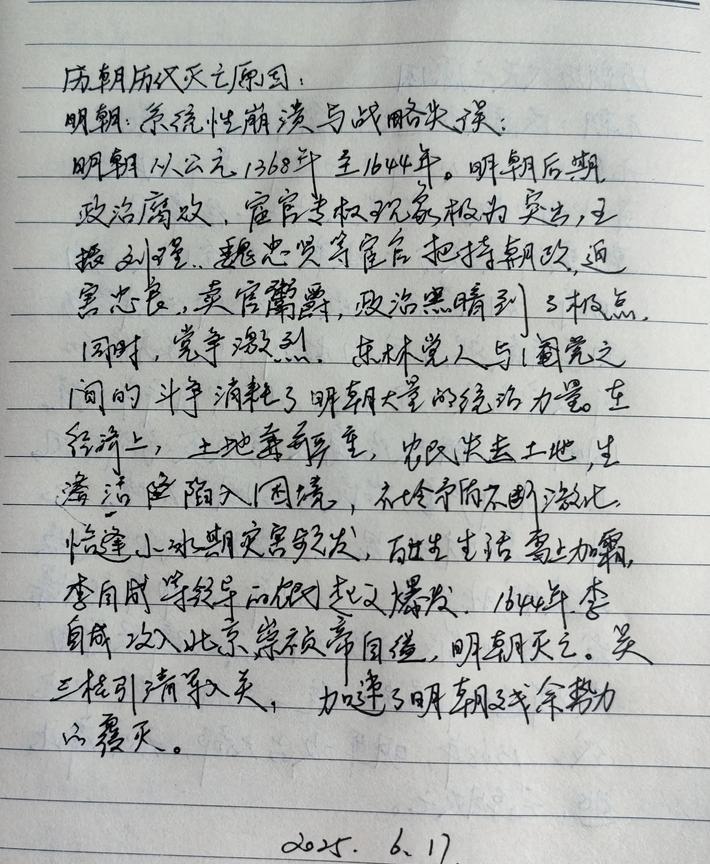 历朝历代灭亡原因：
明朝：系统性崩溃与战略失误：
明朝从公元1368年至1644年。明朝后期
政治腐败，宦官专权现象极为突出，王
振刘瑾..魏忠贤等宦官把持朝政，迫
害忠良，卖官鬻爵，政治黑暗到了极点，
同时，党争激烈．东林党人与阉党之
间的斗争消耗了明朝大量的统治力量。在
经济上，土地兼并严重，农民失去土地，生
活陷入困境，社会矛盾不断激化．
恰逢小冰期灾害频发，百姓生活雪上加霜，
李自成等领导的农民起义爆发．1644年李
自成攻入北京，崇祯帝自缢，明朝灭亡。吴
三桂引清军入关，加速了明朝残余势力
的覆灭。
2025.6.17